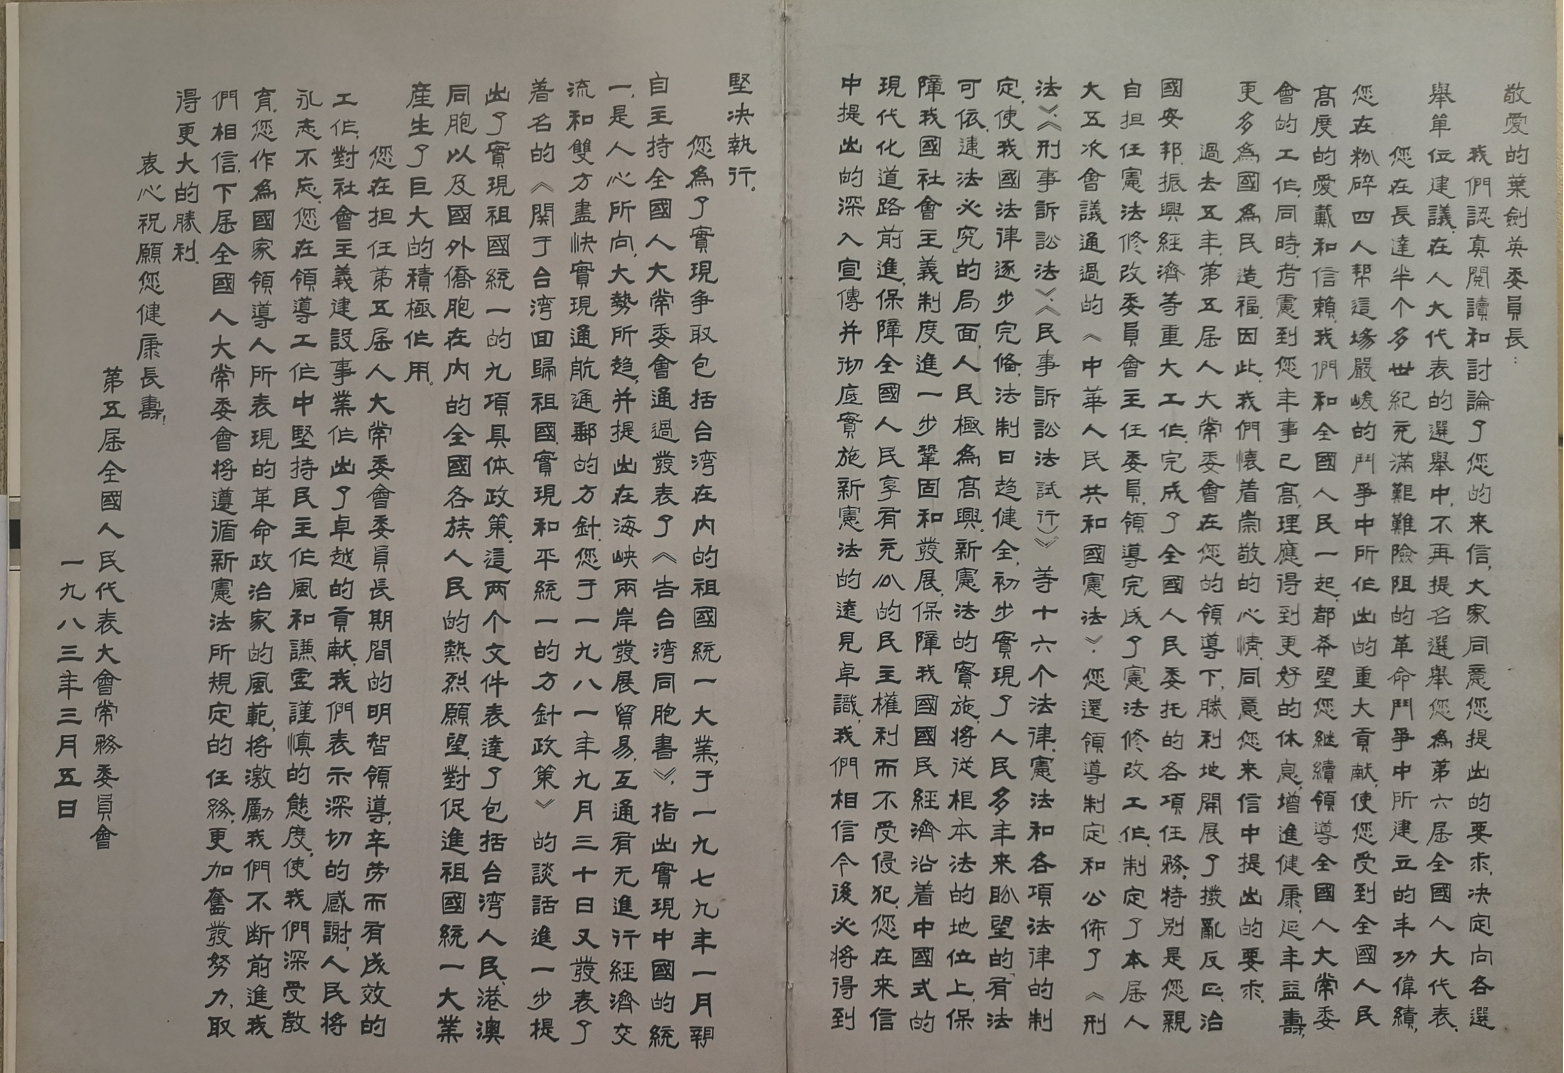 敬愛的葉劍英委員長：
我們認真閱讀和討論了您的来信，大家同意您提出的要求，决定向各選
舉單位建議，在人大代表的選舉中，不再提名選舉您為第六届全國人大代表。
您在長達半个多世紀充滿艱難險阻的革命鬥爭中所建立的丰功偉績，
您在粉碎四人帮這場嚴峻的鬥爭中所作出的重大貢献，使您受到全國人民
髙度的愛戴和信賴，我們和全國人民一起，都希望您継續領導全國人大常委
會的工作，同時，考慮到您年事已髙，理應得到更好的休息，增進健康，延年益壽，
更多為國為民造福，因此，我們懷着崇敬的心情，同意您来信中提出的要求。
過去五年，第五届人大常委會在您的領導下，勝利地開展了撥亂反正、治
國安邦、振興經濟等重大工作，完成了全國人民委托的各項任務，特别是您親
自担任憲法修改委員會主任委員，領導完成了憲法修改工作，制定了本届人
大五次會議通過的《中華人民共和國憲法》，您還領導制定和公佈了《刑
法》、《刑事訴訟法》、《民事訴訟法（試行）》等十六个法律，憲法和各項法律的制
定，使我國法律逐步完俻，法制日趋健全，初步實現了人民多年来盼望的“有法
可依，違法必究”的局面，人民極為髙興，新憲法的實施，将從根本法的地位上，保
障我國社會主義制度進一步鞏固和發展，保障我國國民經濟沿着中國式的
現代化道路前進，保障全國人民享有充分的民主權利而不受侵犯，您在来信
中提出的深入宣傳并彻底實施新憲法的遠見卓識，我們相信今後必将得到
堅决執行。
您為了實現争取包括台湾在内的祖國統一大業，于一九七九年一月親
自主持全國人大常委會通過發表了《告台湾同胞書》，指出實現中國的統
一，是人心所向，大勢所趋，并提出在海峽兩岸發展貿易，互通有无，進行經濟交
流和雙方盡快實現通航通郵的方針，您于一九八一年九月三十日又發表了
着名的《関于台湾回歸祖國，實現和平統一的方針政策》的談話，進一步提
出了實現祖國統一的九項具体政策，這两个文件表達了包括台湾人民、港澳
同胞以及國外僑胞在内的全國各族人民的熱烈願望，對促進祖國統一大業
産生了巨大的積極作用。
您在担任第五届人大常委會委員長期間的明智領導，辛劳而有成效的
工作，對社會主義建設事業作出了卓越的貢献，我們表示深切的感謝，人民将
永志不忘，您在領導工作中堅持民主作風和謙虛謹慎的態度，使我們深受教
育，您作為國家領導人所表現的革命政治家的風範，将激勵我們不断前進，我
們相信，下届全國人大常委會将遵循新憲法所規定的任務，更加奮發努力，取
得更大的勝利。
衷心祝願您健康長壽！
第五届全國人民代表大會常務委員會
一九八三年三月五日